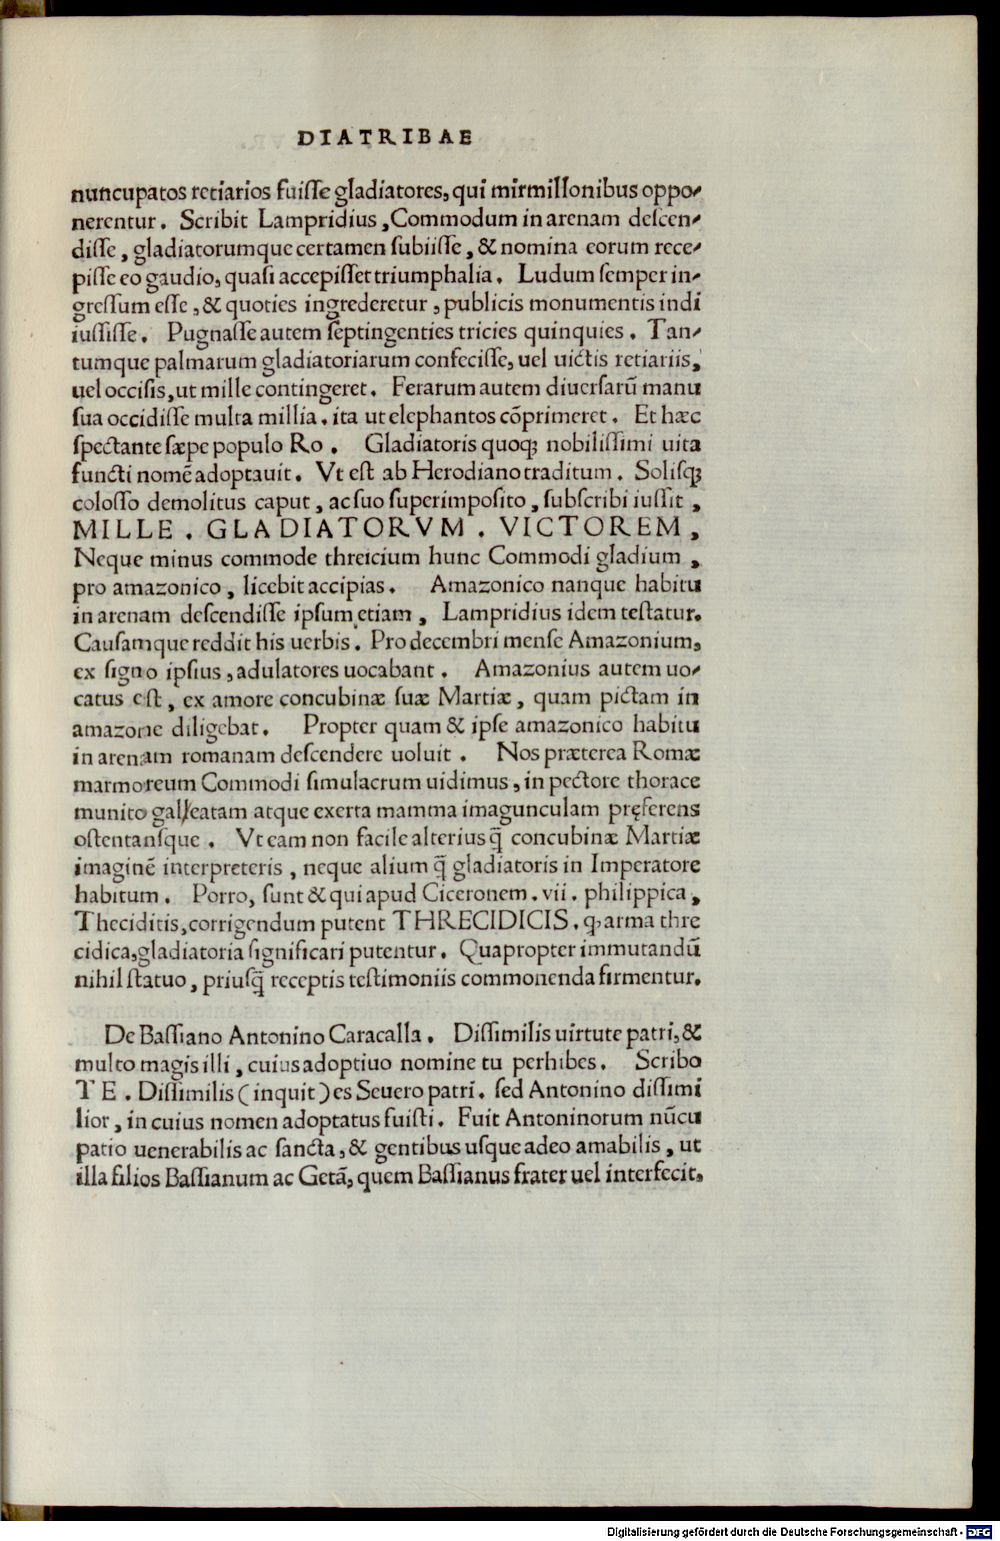 DIATRIBAE
nuncupatos retiarios fuiſſe gladiatores, qui mirmillonibus oppo-
nerentur. Scribit Lampridius, Commodum in arenam deſcen-
diſſe, gladiatorumque certamen ſubiiſſe, & nomina eorum rece-
piſſe eo gaudio, quaſi accepiſſet triumphalia. Ludum ſemper in-
greſſum eſſe, & quoties ingrederetur, publicis monumentis indi
iuſſiſſe. Pugnaſſe autem ſeptingenties tricies quinquies. Tan-
tumque palmarum gladiatoriarum confeciſſe, uel uictis retiariis,
uel occiſis, ut mille contingeret. Ferarum autem diuerſarū manu
ſua occidiſſe multa millia. ita ut elephantos cōprimeret. Et hæc
ſpectante ſæpe populo Ro. Gladiatoris quoqꝫ nobiliſſimi uita
functi nomē adoptauit. Vt eſt ab Herodiano traditum. Soliſqꝫ
coloſſo demolitus caput, ac ſuo ſuperimpoſito, ſubſcribi iuſſit,
MILLE. GLADIATORVM. VICTOREM,
Neque minus commode threicium hunc Commodi gladium,
pro amazonico, licebit accipias. Amazonico nanque habitu
in arenam deſcendiſſe ipſum etiam, Lampridius idem teſtatur.
Cauſamque reddit his uerbis. Pro decembri menſe Amazonium,
ex ſigno ipſius, adulatores uocabant. Amazonius autem uo-
catus eſt, ex amore concubinæ ſuæ Martiæ, quam pictam in
amazone diligebat. Propter quam & ipſe amazonico habitu
in arenam romanam deſcendere uoluit. Nos præterea Romæ
marmoreum Commodi ſimulacrum uidimus, in pectore thorace
munito gal/eatam atque exerta mamma imagunculam pręferens
oſtentanſque. Vt eam non facile alterius q̄ concubinæ Martiæ
imaginē interpreteris, neque alium q̄ gladiatoris in Imperatore
habitum. Porro, ſunt & qui apud Ciceronem. vii. philippica,
Theciditis, corrigendum putent THRECIDICIS. ꝙ arma thre
cidica, gladiatoria ſignificari putentur. Quapropter immutandū
nihil ſtatuo, priuſq̄ receptis teſtimoniis commonenda firmentur.
De Baſſiano Antonino Caracalla. Diſſimilis uirtute patri, &
multo magis illi, cuius adoptiuo nomine tu perhibes. Scribo
TE. Diſſimilis (inquit) es Seuero patri. ſed Antonino diſſimi
lior, in cuius nomen adoptatus fuiſti. Fuit Antoninorum nūcu
patio uenerabilis ac ſancta, & gentibus uſque adeo amabilis, ut
illa filios Baſſianum ac Getā, quem Baſſianus frater uel interfecit,
Digitalisierung gefördert durch die Deutsche Forschungsgemeinschaft - DFG